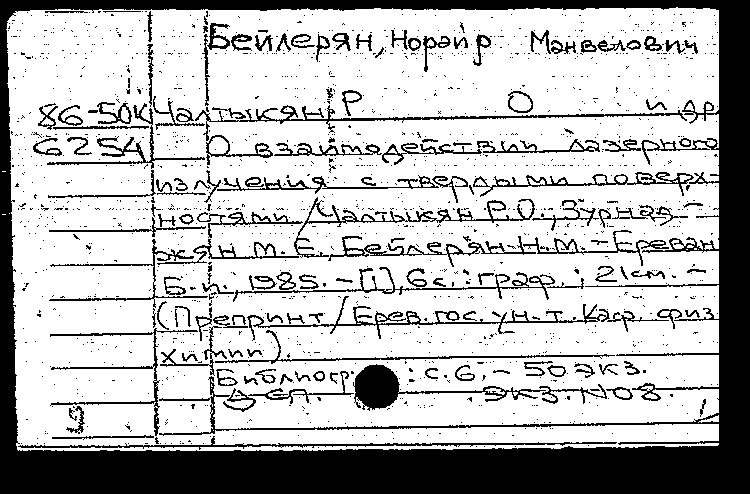 Бейлерян, Норайр Манвелович
86-50К Чалтыкян Р О и др
6254 О взаимодействии лазерного
излучения с твердыми поверх-
ностями / Чалтыкян Р.О., Зурнад-
жян М. Е., Бейлерян Н.М. - Ереван
Б.и., 1985. - [1], 6с. : граф. ; 21см. -
(Препринт / Ерев. гос. ун-т. Каф. физ
химии).
Библиогр : с. 6. - 50 экз.
Деп. экз. №08.